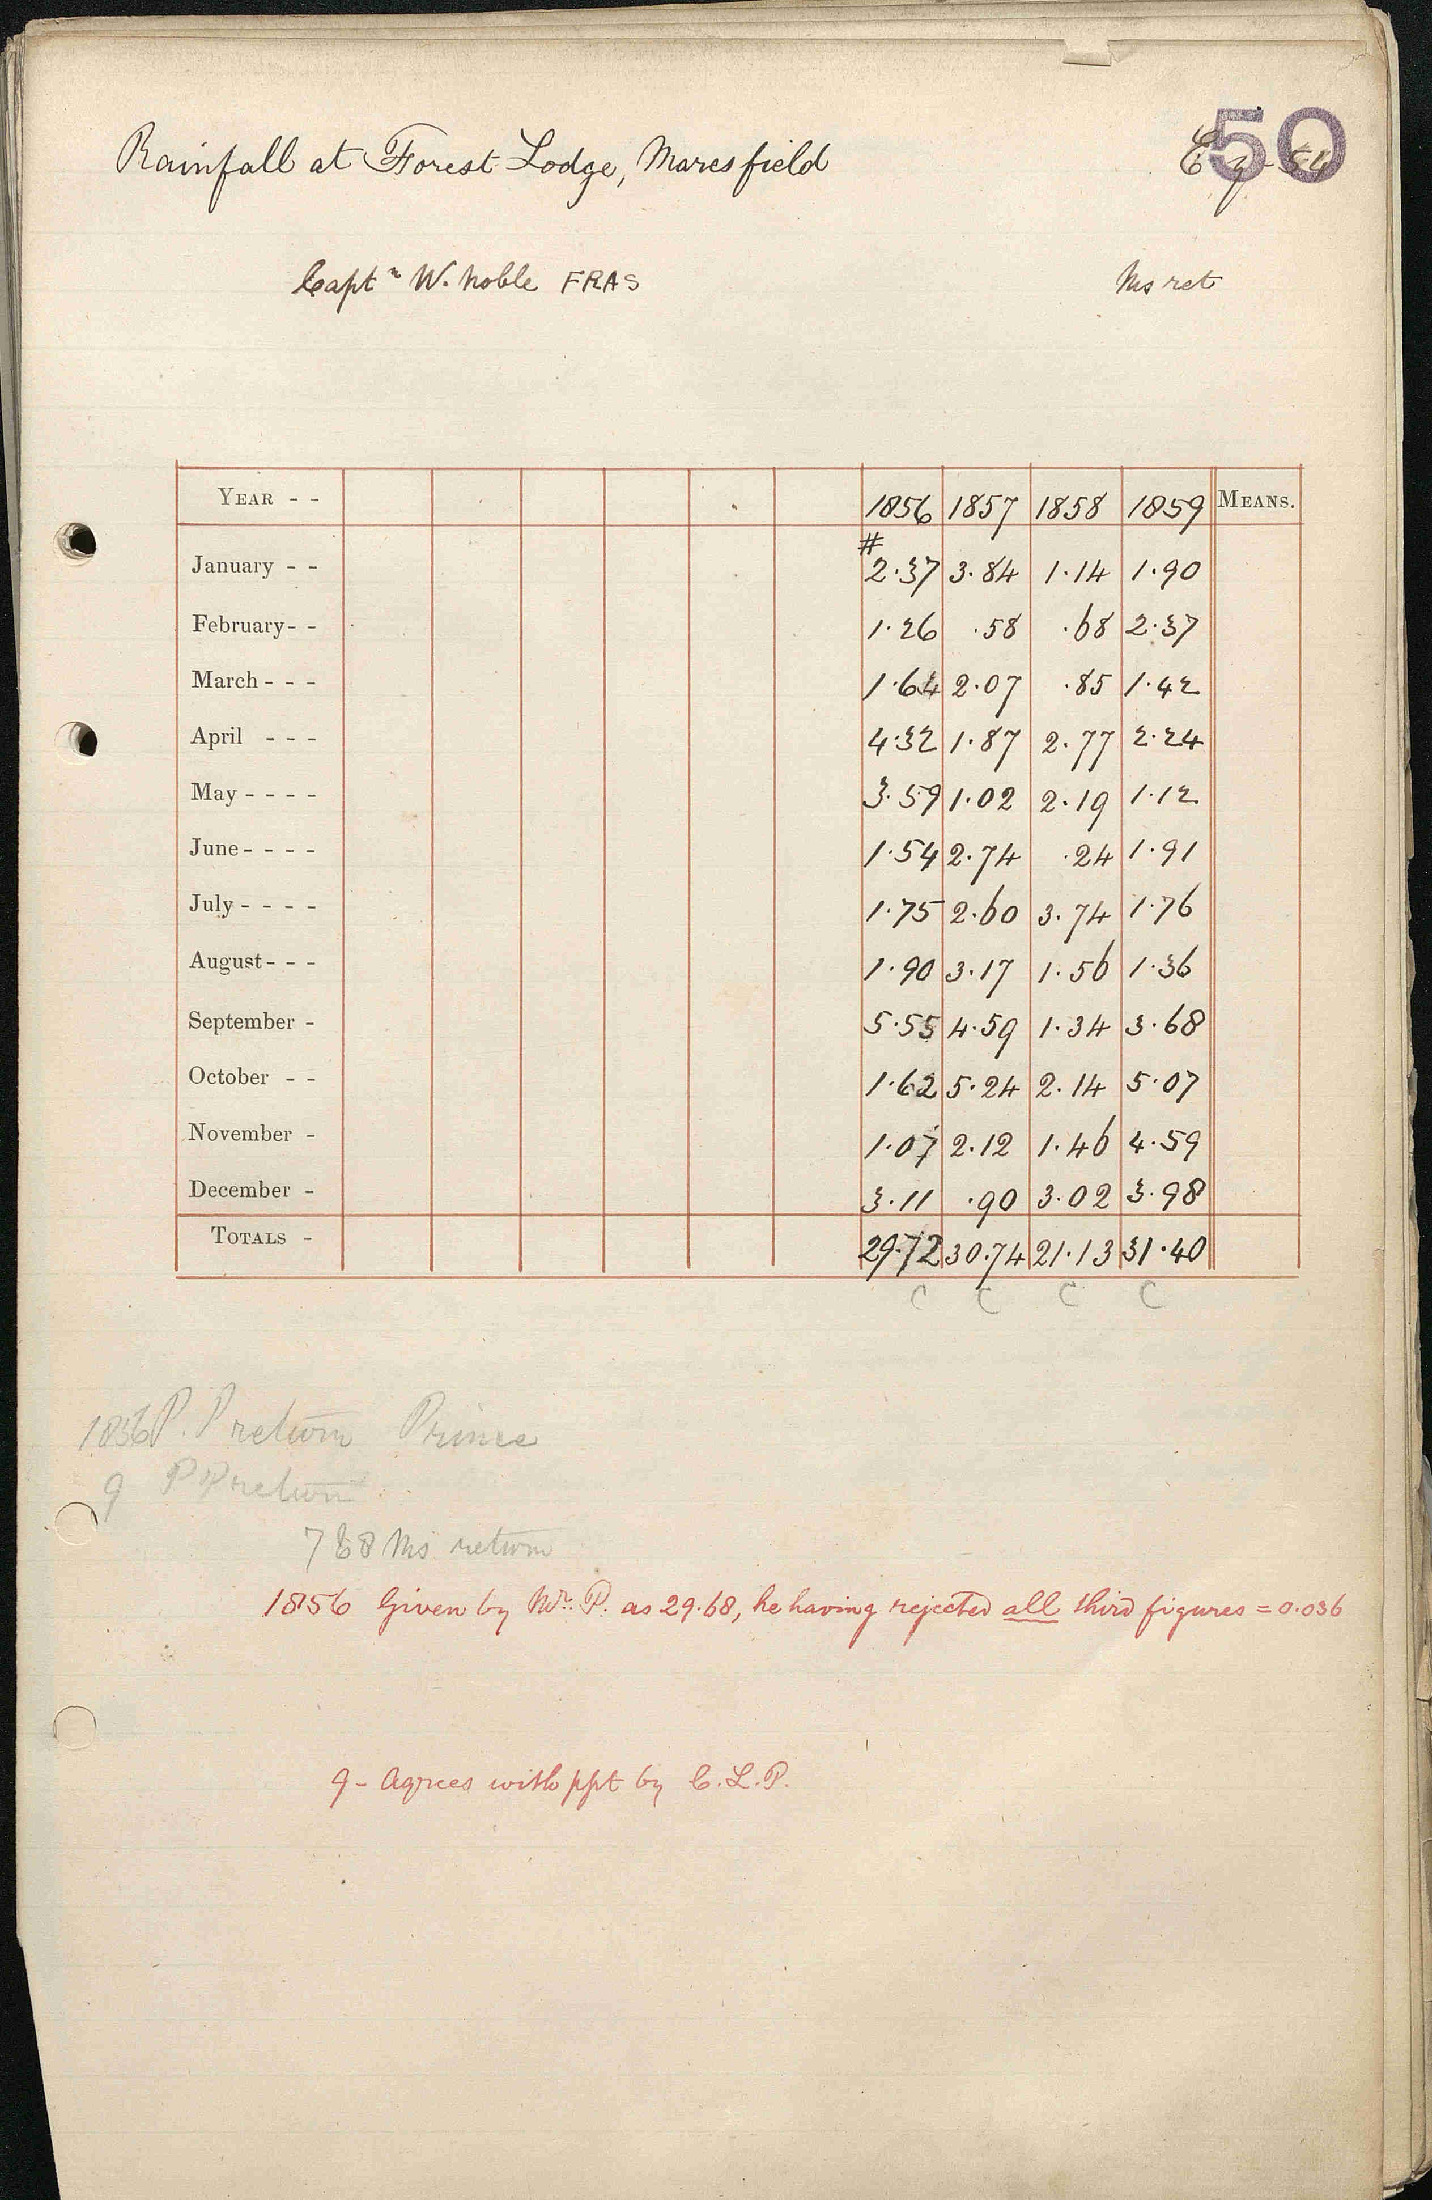 50
Rainfall at Forest Lodge, Maresfield
Captn W. Noble FRAS Ms ret
YEAR - - 1856 1857 1858 1859 MEANS.
#
January - - 2.37 3.84 1.14 1.90
February - - 1.26 .58 .68 2.37
March - - - 1.64 2.07 .85 1.42
April - - - 4.32 1.87 2.77 2.24
May - - - - 3.59 1.02 2.19 1.12
June - - - - 1.54 2.74 .24 1.91
July - - - - 1.75 2.60 3.74 1.76
August - - - 1.90 3.17 1.56 1.36
September - 5.55 4.59 1.34 3.68
October - - 1.62 5.24 2.14 5.07
November - 1.07 2.12 1.46 4.59
December - 3.11 .90 3.02 3.98
TOTALS - 29.72 30.74 21.13 31.40
C C C C
1856 P. P return Prince
9 PP return
7 & 8 Ms return
1856 Given by Mr. P. as 29.68, he having rejected all third figures = 0.036
9 - Agrees with ppt by C. L. P.